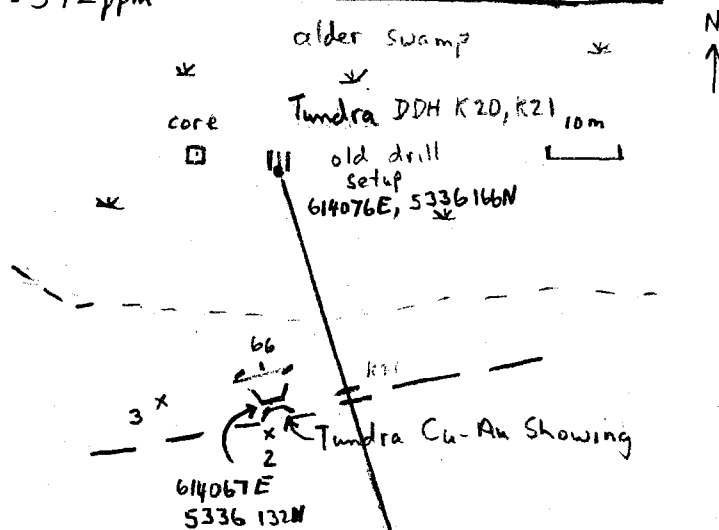 alder swamp
N
core
Tundra DDH K20, K21
10m
old drill
setup
614076E, 5336166N
66
3 x
x
2
Tundra Cu-Au Showing
614067E
5336 132N